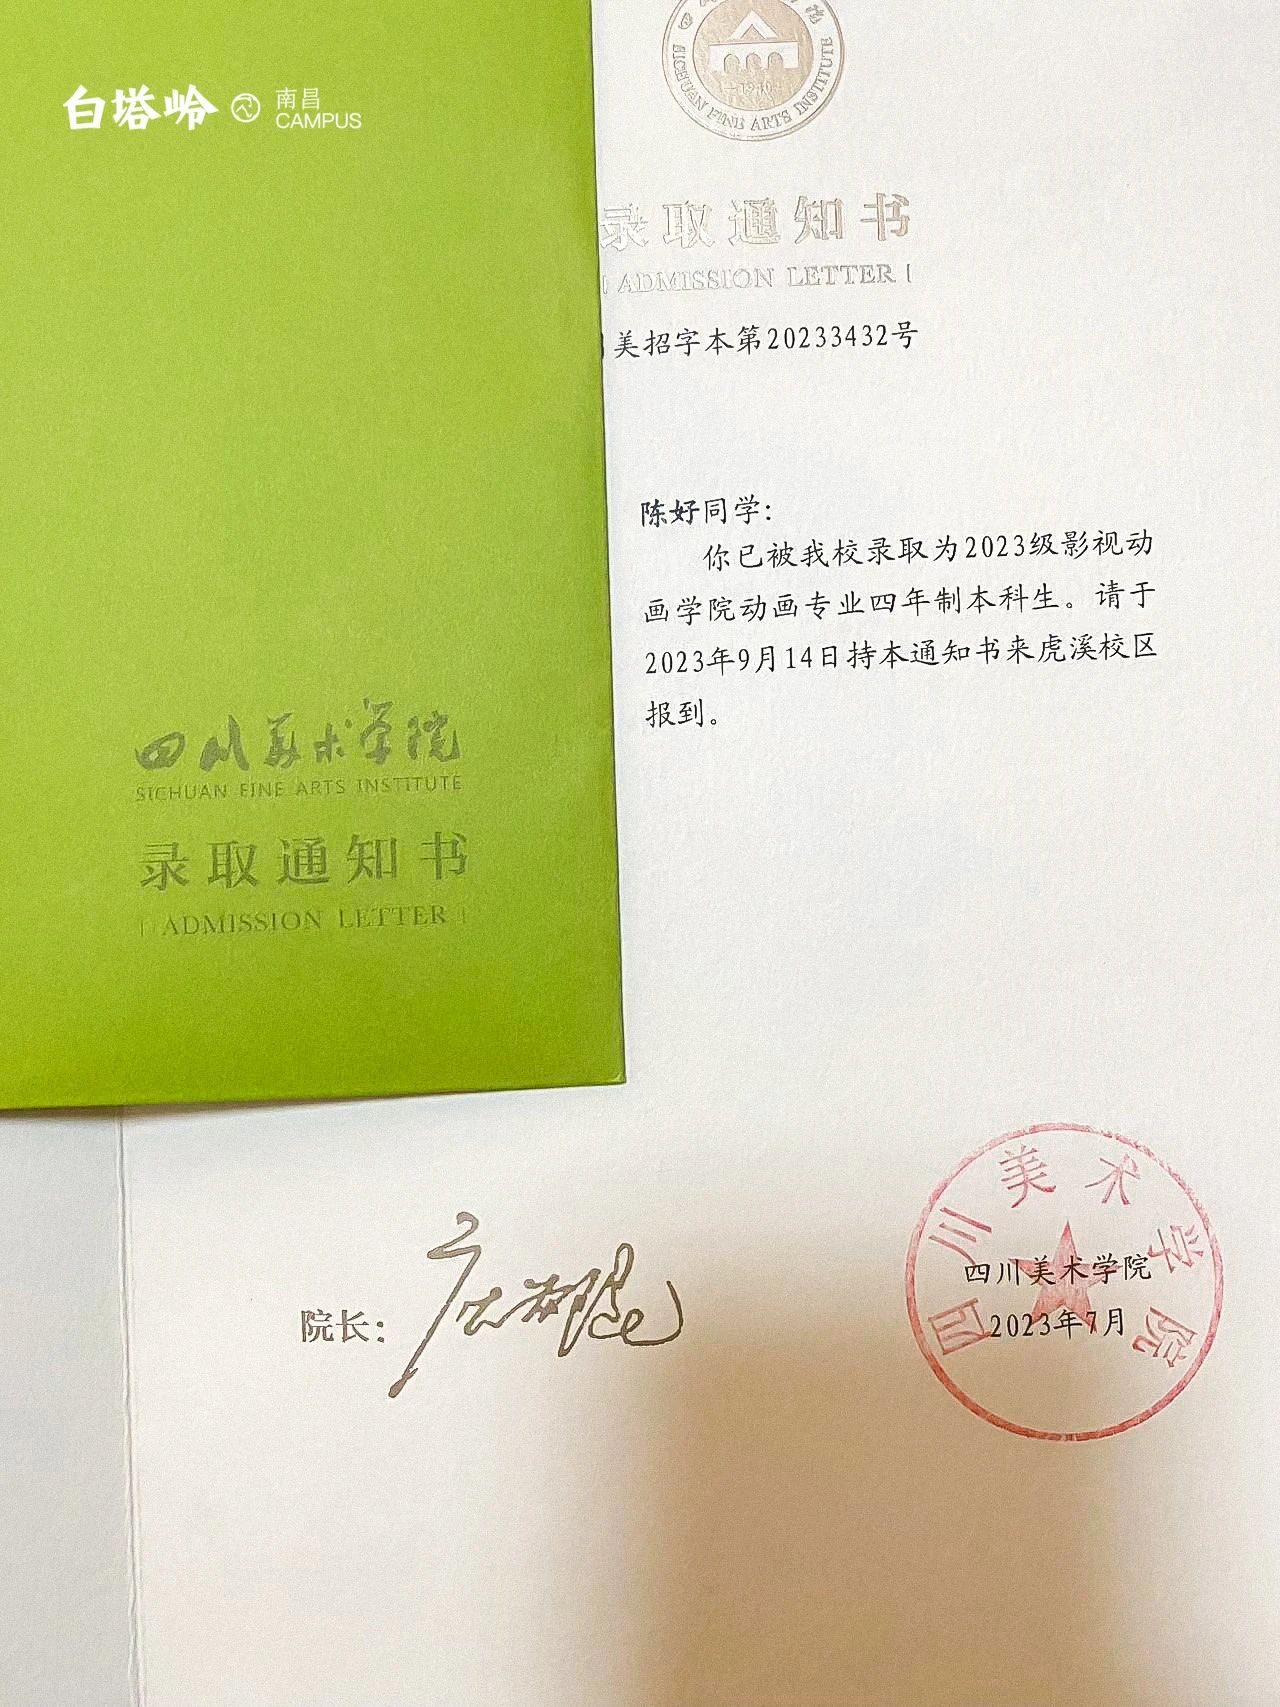 白塔岭 南昌
CAMPUS
SICHUAN FINE ARTS INSTITUTE
1940
录取通知书
ADMISSION LETTER
美招字本第20233432号
陈好同学：
你已被我校录取为2023级影视动
画学院动画专业四年制本科生。请于
2023年9月14日持本通知书来虎溪校区
报到。
四川美术学院
SICHUAN FINE ARTS INSTITUTE
录取通知书
ADMISSION LETTER
院长：
四川美术学院
四川美术学院
2023年7月